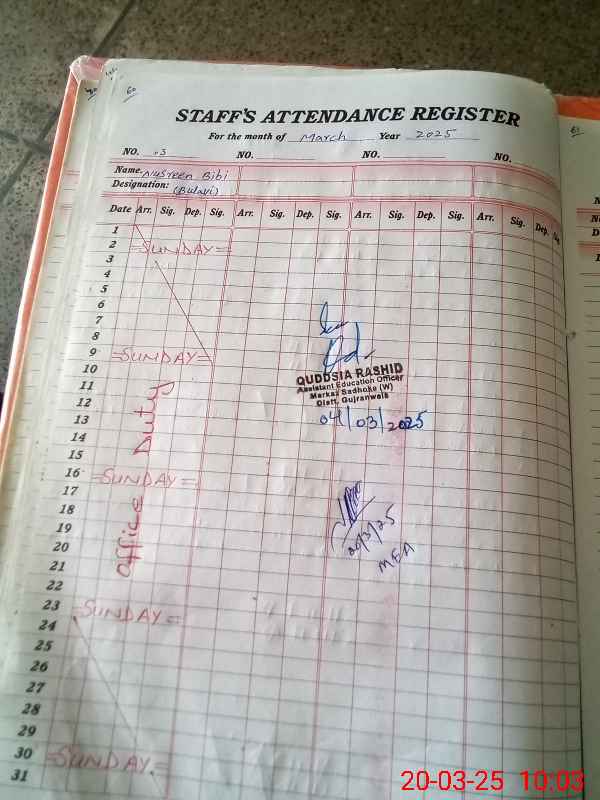 60
61
STAFF'S ATTENDANCE REGISTER
For the month of March Year 2025
NO. 03 NO. NO. NO.
Name. Nusreen Bibi
Designation: (Bulavi)
Date Arr. Sig. Dep. Sig. Arr. Sig. Dep. Sig. Arr. Sig. Dep. Sig. Arr. Sig. Dep. Sig.
1
2 =SUNDAY=
3
4
5
6
7
8
9 =SUNDAY=
10
11
12
13
14
15
16 =SUNDAY=
17
18
19
20
21
22
23 =SUNDAY=
24
25
26
27
28
29
30 =SUNDAY=
31
Office Duty
QUDDSIA RASHID
Assistant Education Officer
Markaz Sadhoke (W)
Distt. Gujranwala
04/03/2025
20/3/25
MEA
20-03-25 10:03